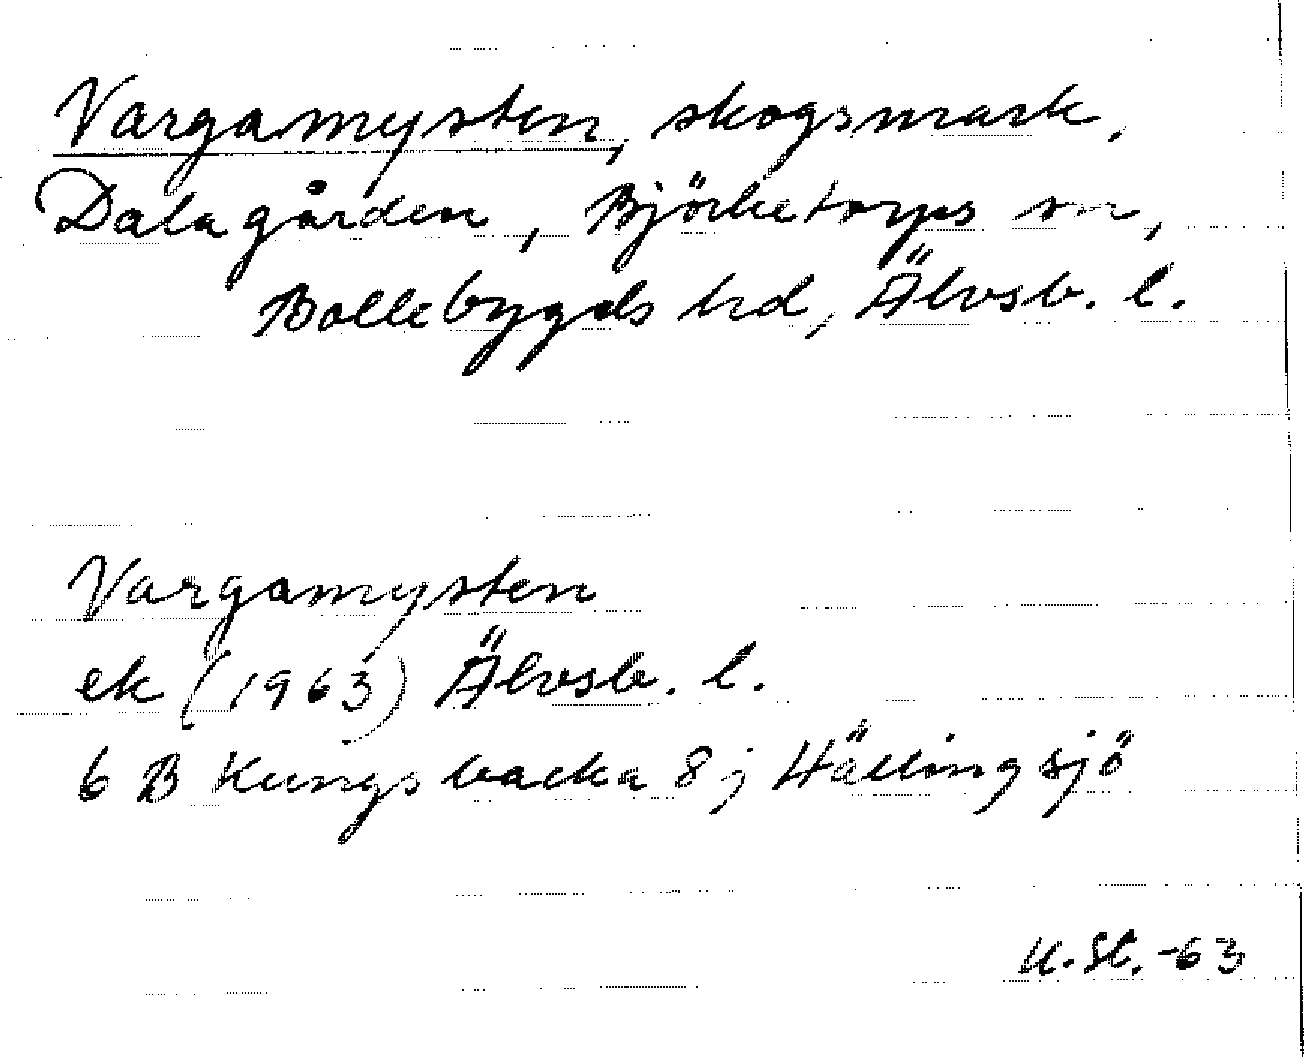 Vargamysten, skogsmark,
Dalagården, Björketorps sn,
Bollebygds hd, Älvsb. l.
Vargamysten
ek (1963) Älvsb. l.
6 B Kungsbacka 8 j Hällingsjö
U. St. -63